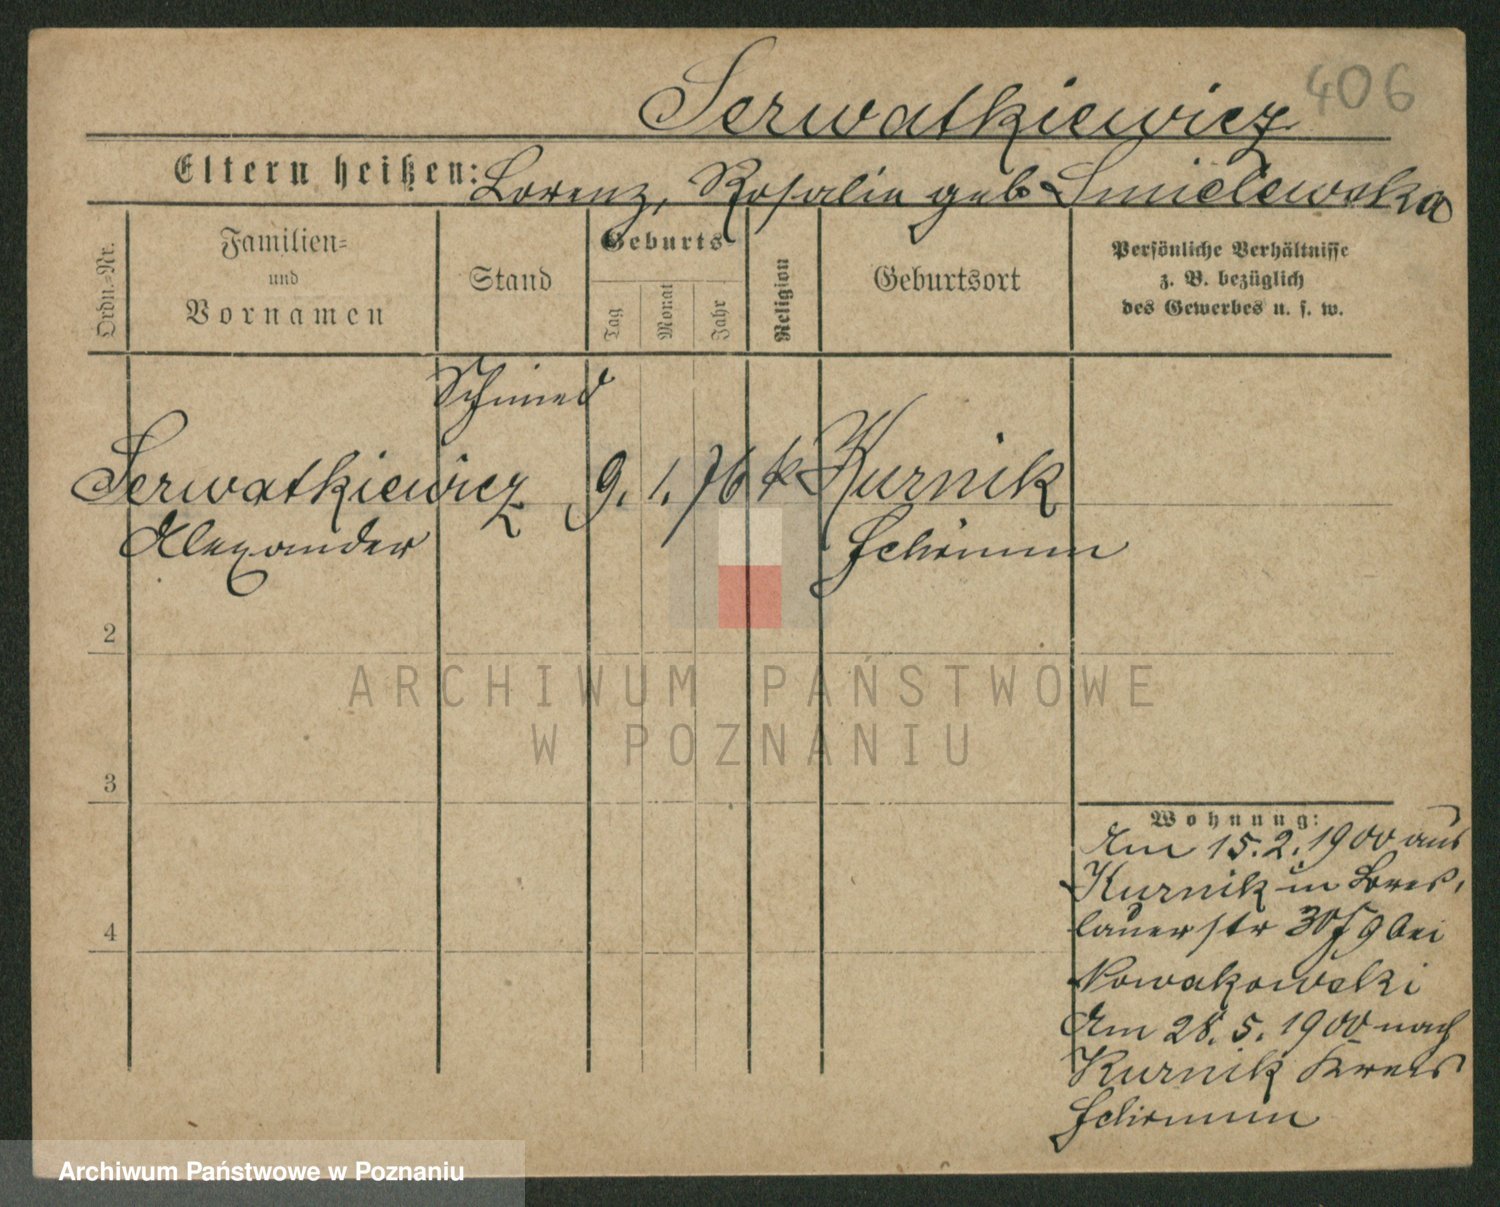 406
Serwatkiewicz
Eltern heißen: Lorenz, Rosalie geb Smielewska
Ordn.-Nr.
Familien-
und
Vornamen
Stand
Geburts
Tag
Monat
Jahr
Religion
Geburtsort
Persönliche Verhältnisse
z. B. bezüglich
des Gewerbes u. s. w.
Schmied
Serwatkiewicz 9. 1. 76 k Kurnik
Alexander Schrimm
2
3
4
ARCHIWUM PAŃSTWOWE
W POZNANIU
Wohnung:
Am 15.2.1900 aus
Kurnik in Bres,
lauerstr 30/9 bei
Nowakowski
Am 28.5.1900 nach
Kurnik Kreis
Schrimm
Archiwum Państwowe w Poznaniu